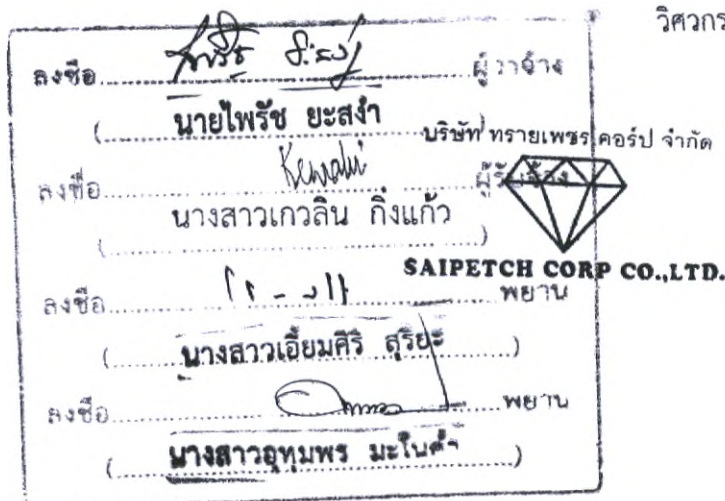 วิศวกร
ลงชือ ผู้ว่าจ้าง
( นายไพรัช ยะสงำ )
บริษัท ทรายเพชร คอร์ป จำกัด
ลงชื่อ Kewalin ผู้รับจ้าง
( นางสาวเกวลิน กิ่งแก้ว )
SAIPETCH CORP CO.,LTD.
ลงชื่อ พยาน
( นางสาวเอี่ยมศิริ สุริยะ )
ลงชื่อ พยาน
( นางสาวอุทุมพร มะโนคำ )